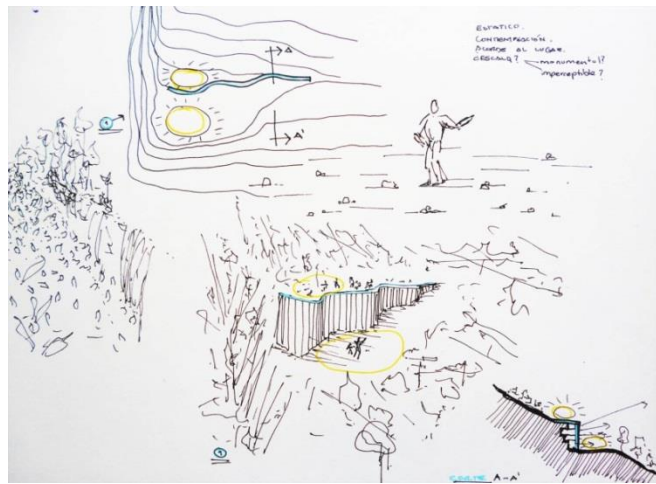 ESTATICO.
CONTEMPLACIÓN.
ACORDE AL LUGAR.
monumental?
imperceptible?
A
A'
1
1
CORTE A-A'